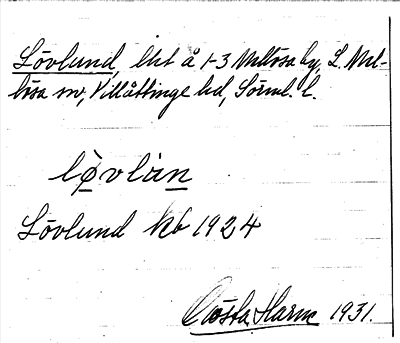 Lövlund, lht å 1-3 Mellösa by, L. Mel-
lösa sn, Villåttinge hd, Sörml. l.
lǿvlùn
Lövlund kb 1924
Gösta Harne 1931.